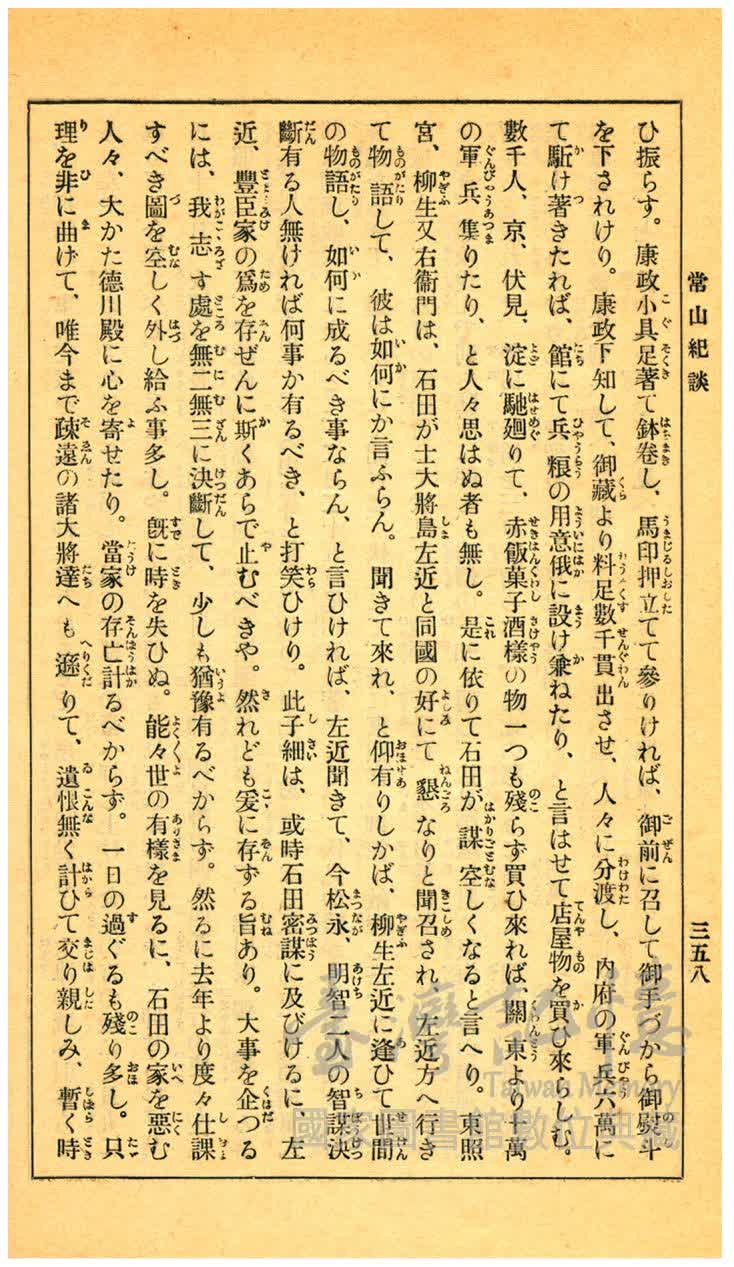 常山紀談
三五八
ひ振らす。康政小具足著て鉢卷し、馬印押立てて參りければ、御前に召して御手づから御熨斗
を下されけり。康政下知して、御藏より料足數千貫出させ、人々に分渡し、內府の軍兵六萬に
て駈け著きたれば、館にて兵粮の用意俄に設け兼ねたり、と言はせて店屋物を買ひ來らしむ。
數千人、京、伏見、淀に馳廻りて、赤飯菓子酒樣の物一つも殘らず買ひ來れば、關東より十萬
の軍兵集りたり、と人々思はぬ者も無し。是に依りて石田が謀空しくなると言へり。東照
宮、柳生又右衞門は、石田が士大將島左近と同國の好にて懇なりと聞召され、左近方へ行き
て物語して、彼は如何にか言ふらん。聞きて來れ、と仰有りしかば、柳生左近に逢ひて世間
の物語し、如何に成るべき事ならん、と言ひければ、左近聞きて、今松永、明智二人の智謀決
斷有る人無ければ何事か有るべき、と打笑ひけり。此子細は、或時石田密謀に及びけるに、左
近、豐臣家の爲を存ぜんに斯くあらで止むべきや。然れども爰に存ずる旨あり。大事を企つる
には、我志す處を無二無三に決斷して、少しも猶豫有るべからず。然るに去年より度々仕課
すべき圖を空しく外し給ふ事多し。旣に時を失ひぬ。能々世の有樣を見るに、石田の家を惡む
人々、大かた德川殿に心を寄せたり。當家の存亡計るべからず。一日の過ぐるも殘り多し。只
理を非に曲げて、唯今まで疎遠の諸大將達へも遜りて、遺恨無く計ひて交り親しみ、暫く時
臺灣記憶
Taiwan Memory
國家圖書館數位典藏